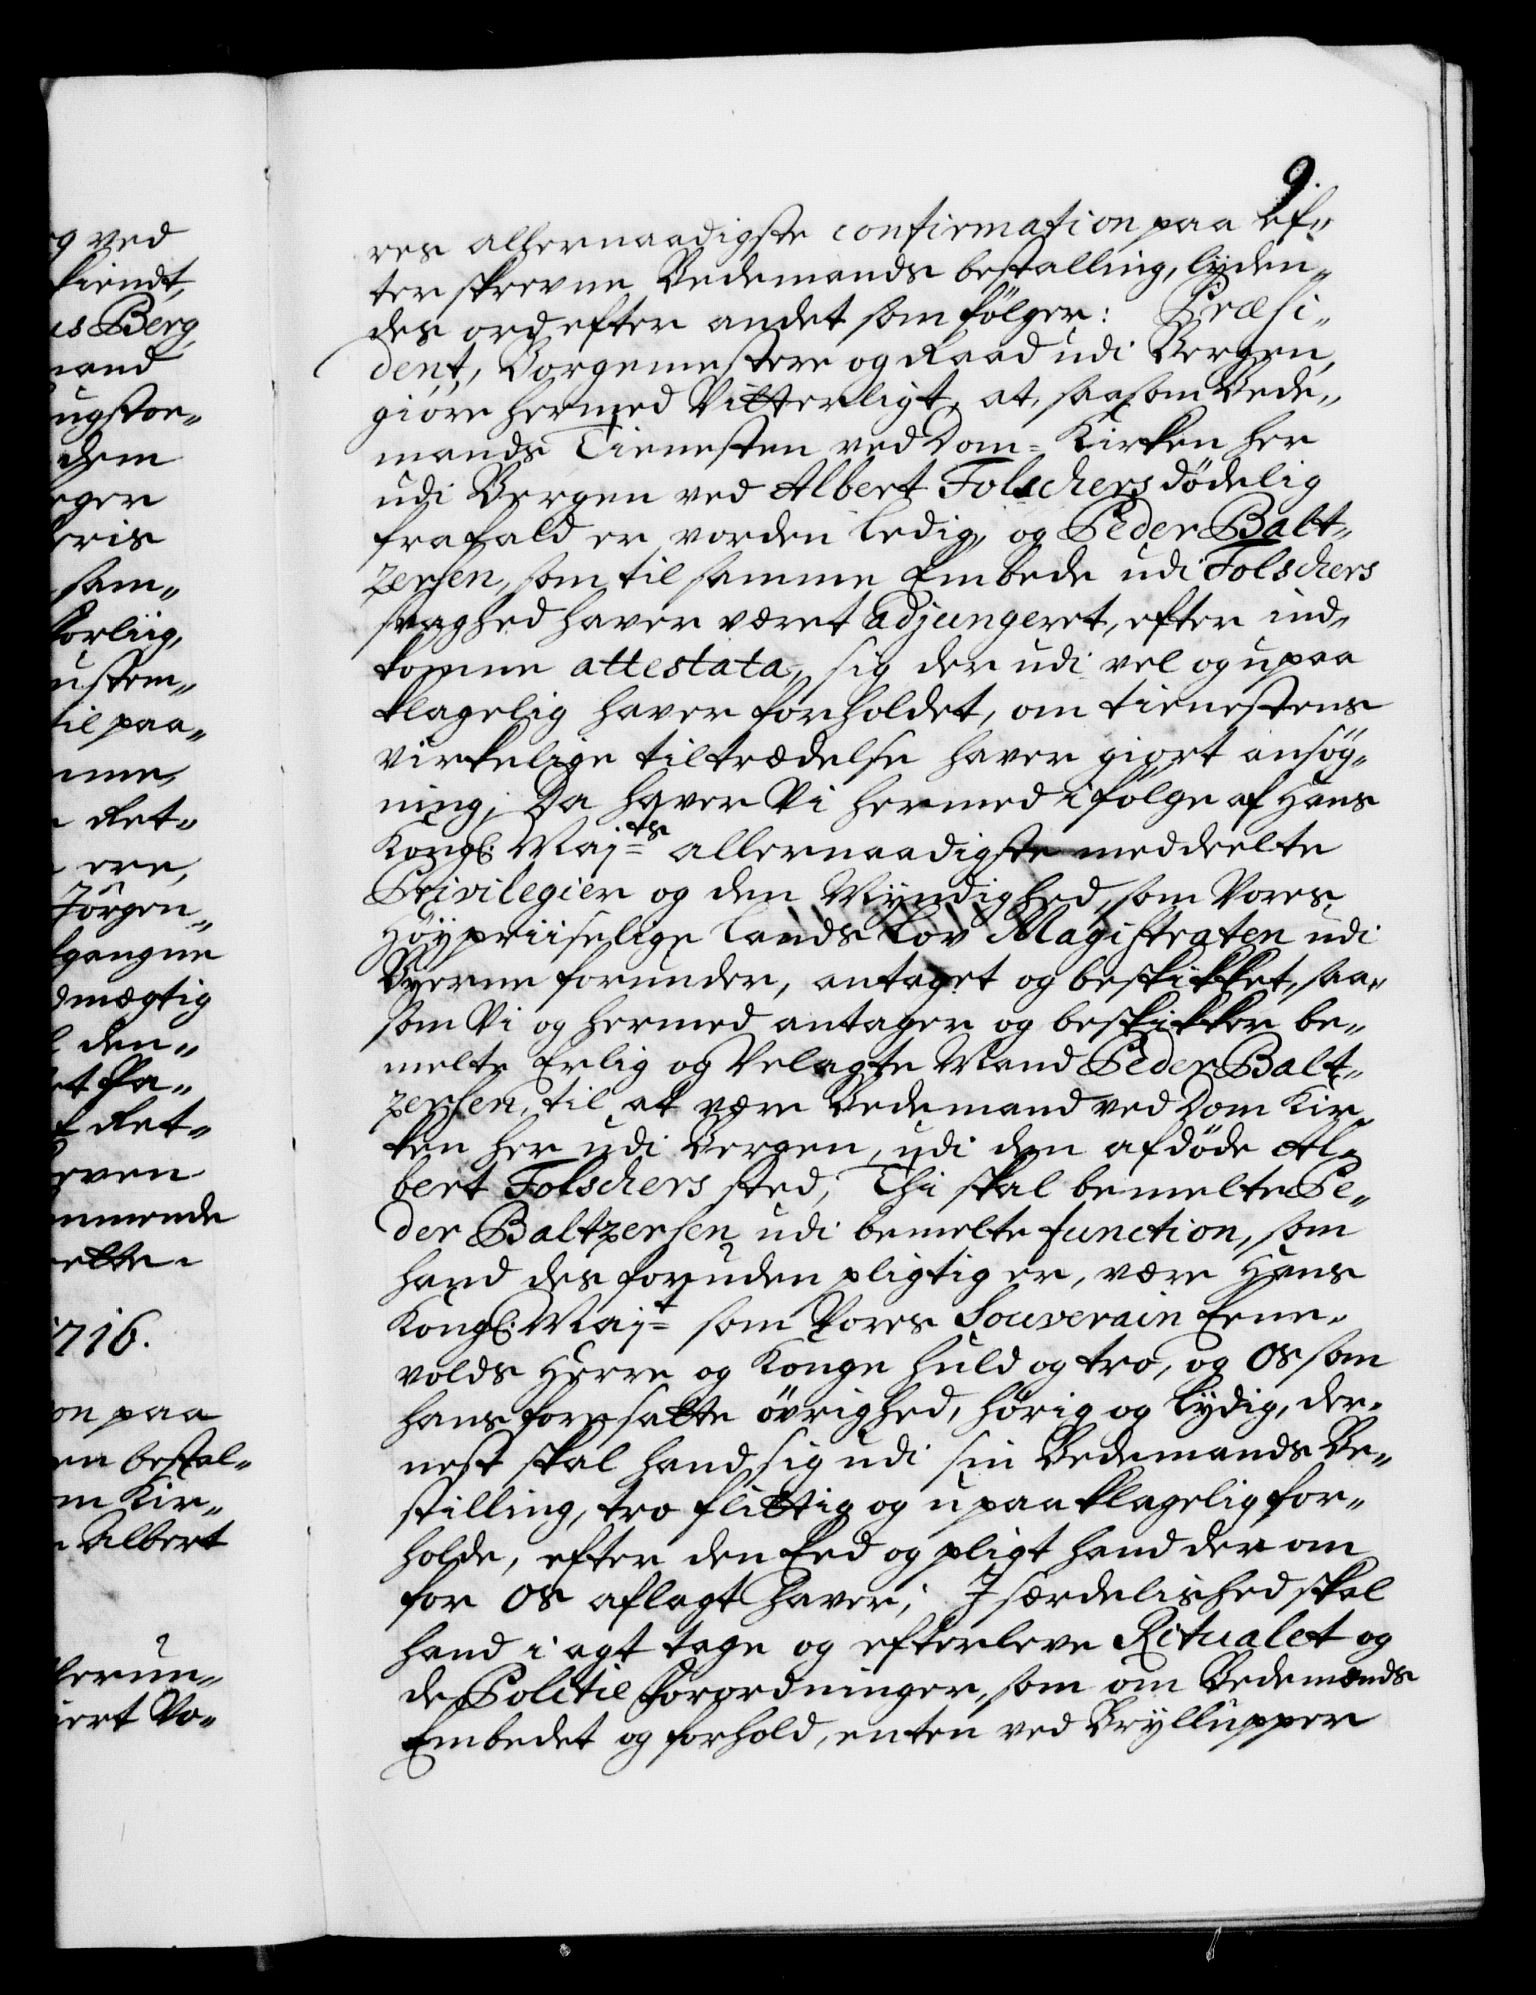 9.
res allernaadigste confirmation paa ef„
ter skrevne Bedemands bestalling, lyden„
des ord efter andet som fölger: Præsi„
dent, Borgemestere og Raad udi Bergen,
giöre hermed Vitterligt, at, saasom Bede„
mands Tienesten ved Dom= Kirken her
udi Bergen ved Albert Folschers dödelig
frafald er vorden ledig, og Peder Balt„
zersen, som til samme Embede udi Folschers
svaghed haver været adjungeret, efter ind„
komne attestata, sig der udi vel og upaa
klagelig haver forholdet, om tienestens
virkelige tiltrædelse haver giort ansög„
ning; Da haver Vi hermed i fölge af Hans
Kongl: Maj=ts allernaadigste meddeelte
Privilegier og den Myndighed, som Vores
Höypriiselige Lands Lov Magistraten udi
Byerne forunder, antaget og beskikket, saa„
som Vi og hermed antager og beskikker be„
melte Erlig og Velagte Mand Peder Balt„
zersen, til at være Bedemand ved Dom Kir„
ken her udi Bergen, udi den afdöde Al„
bert Folschers sted; Thi skal bemelte Pe„
der Baltzersen udi bemelte function, som
hand des foruden pligtig er, være Hans
Kongl: Maj=t som Vores Souverain Eene„
volds Herre og Konge huld og tro, og Os som
hans foresatte övrighed, hörig og lydig, der„
nest skal hand sig udi sin Bedemands Be„
stilling, tro flittig og upaaklagelig for„
holde, efter den Eed og pligt hand der om
for Os aflagt haver; Jsærdelished skal
hand i agt tage og efterleve Ritualet og
de Politie Forordninger, som om Bedemands
Embedet og forhold, enten ved Bryllupper
g ved
kiendt,
us Berg,
mand
ugstoe„
dem
eger
eris
sam„
korliig,
ustem„
til paa„
nme,
Ret„
ere,
Jörgen„
fgangne
dmægtig
den„
et Pa„
t Ret„
even
mmende
ette.
1716.
on paa
en bestal„
om Kir„
Albert
lerun„
iert Vo„